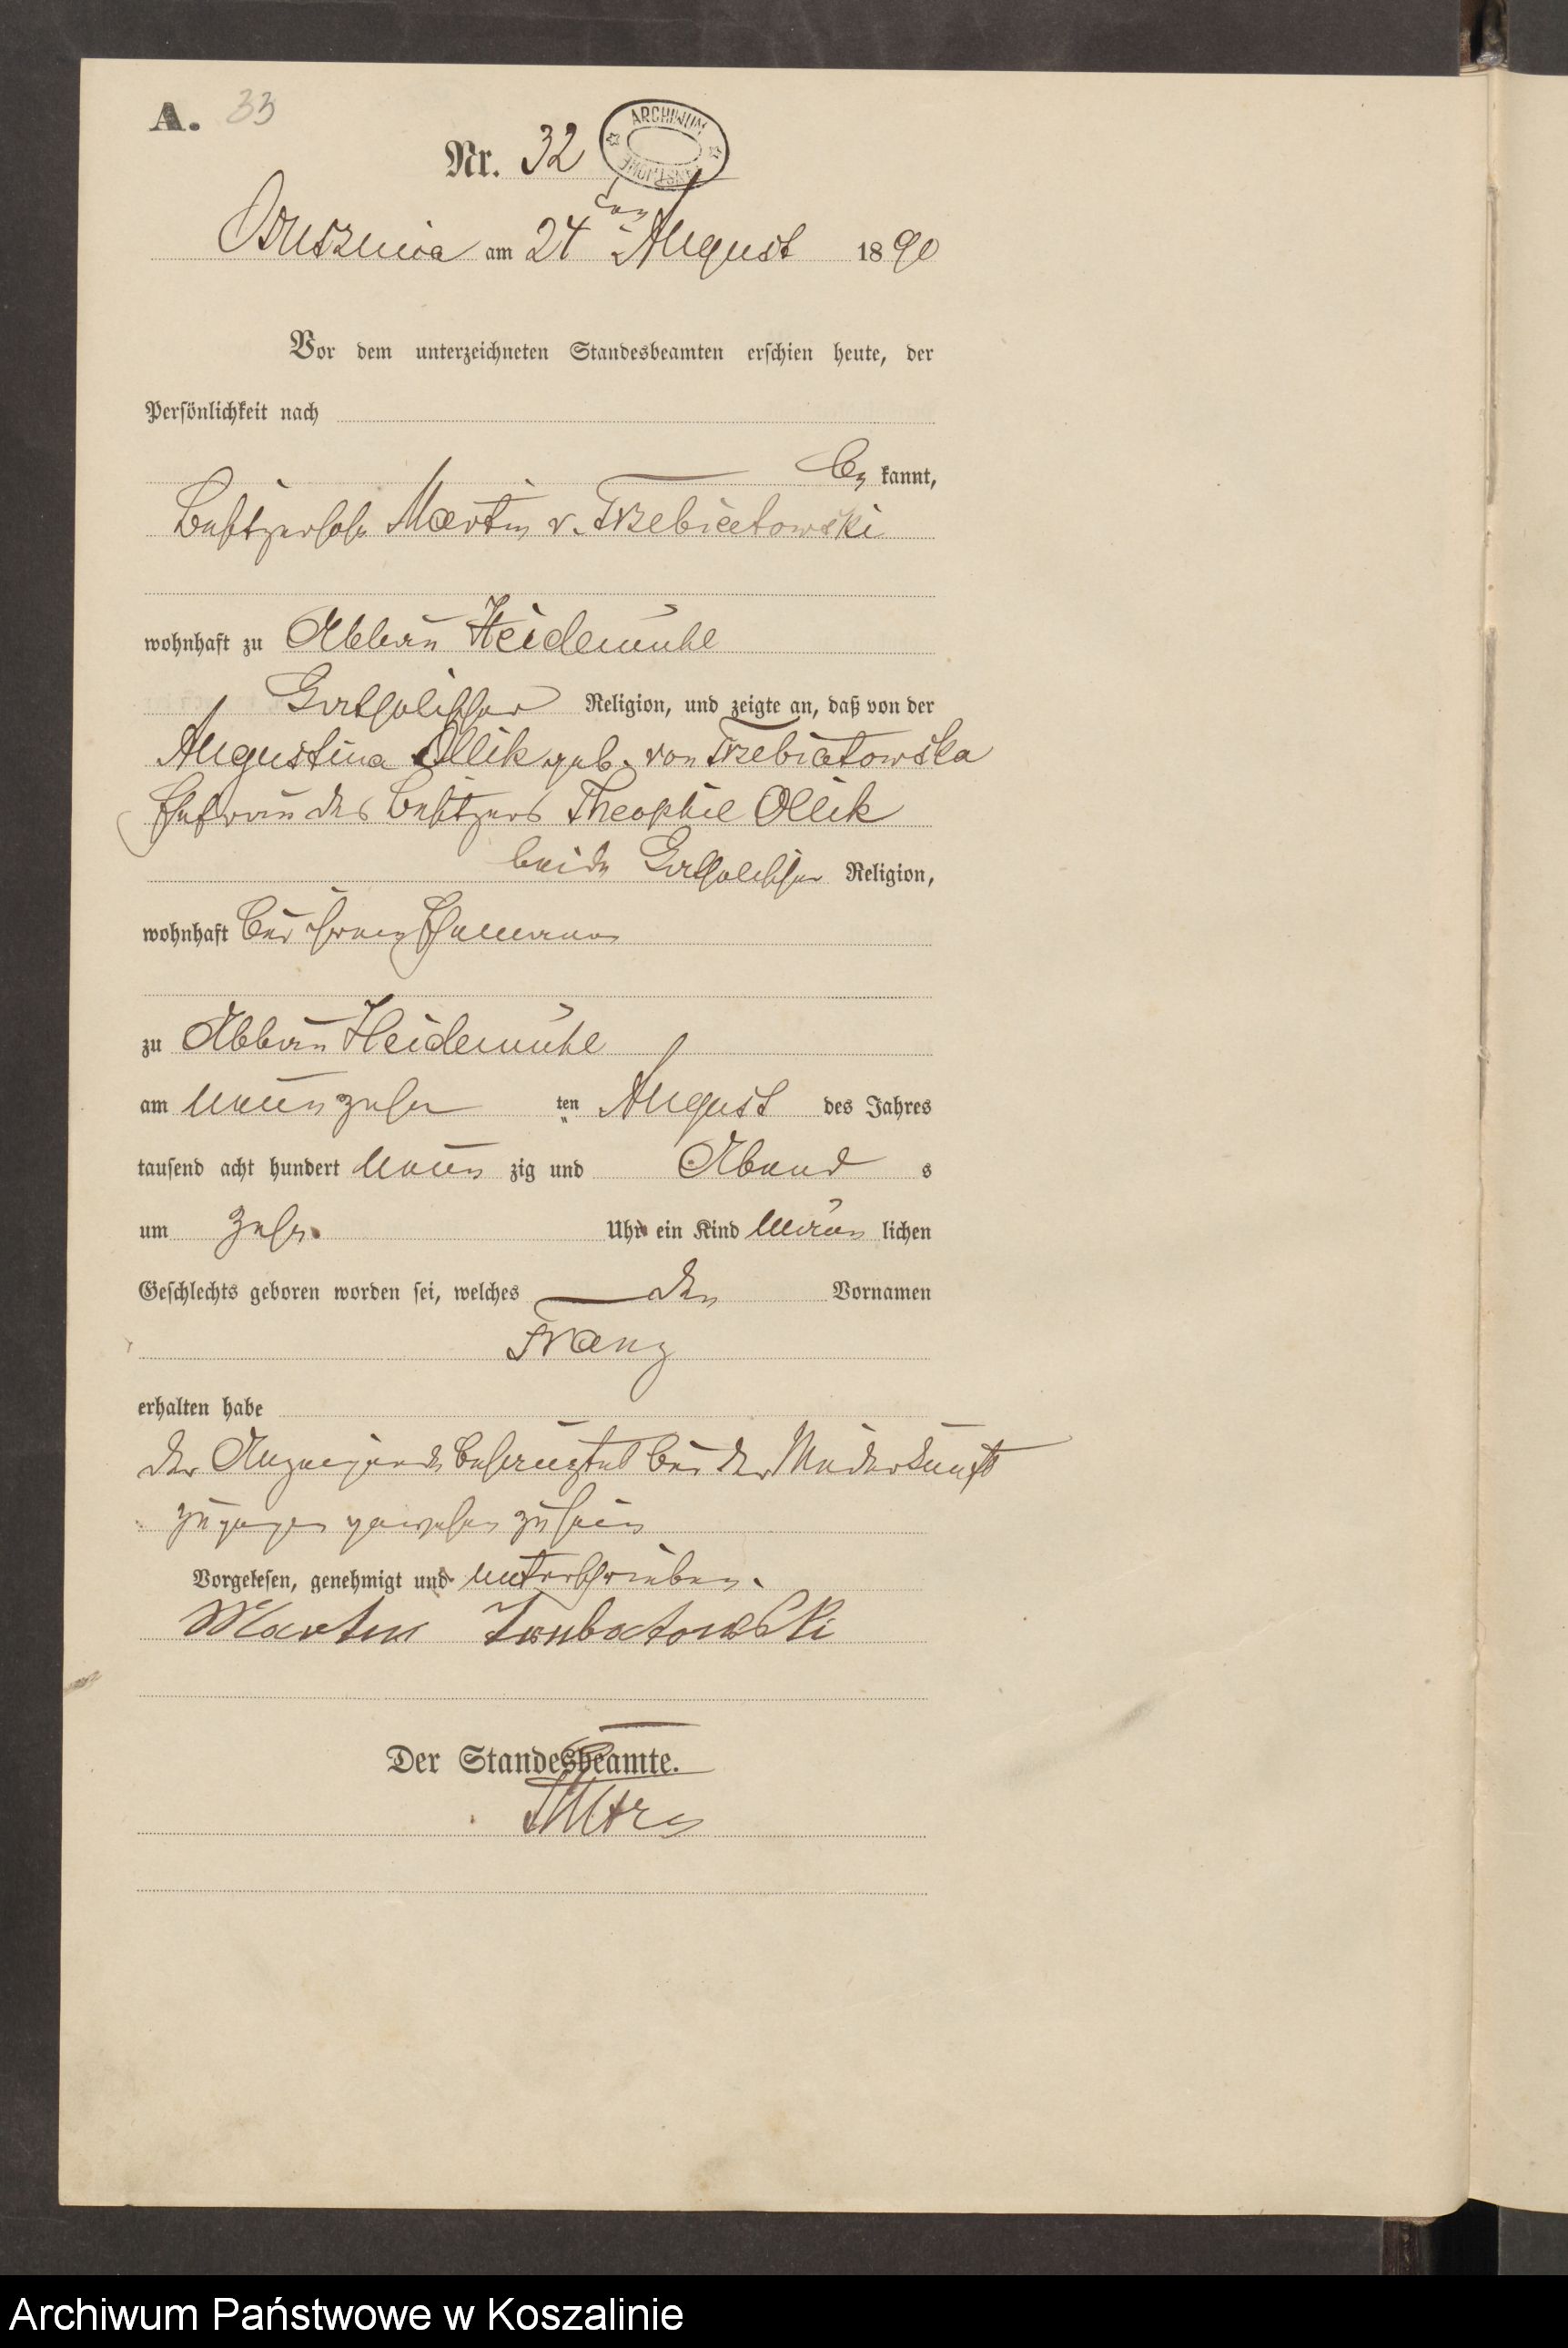 A. 33
Nr. 32
ARCHIWUM
Osusznica am 24 ten August 1890
Vor dem unterzeichneten Standesbeamten erschien heute, der
Persönlichkeit nach
be kannt,
Besitzersohn Martin v. Trzebiatowski
wohnhaft zu Abbau Heidemühl
katholischer Religion, und zeigte an, daß von der
Augustina Ollik geb. von Trzebiatowska
Ehefrau des Besitzers Theophil Ollik
beide katholischer Religion,
wohnhaft bei ihrem Ehemann
zu Abbau Heidemühl
am neunzehn ten August des Jahres
tausend acht hundert neun zig und Abend s
um zehn Uhr ein Kind männ lichen
Geschlechts geboren worden sei, welches den Vornamen
Franz
erhalten habe
der Anzeigende bezeugte bei der Niederkunft
zugegen gewesen zu sein
Vorgelesen, genehmigt und unterschrieben.
Martin
Der Standesbeamte.
Archiwum Państwowe w Koszalinie